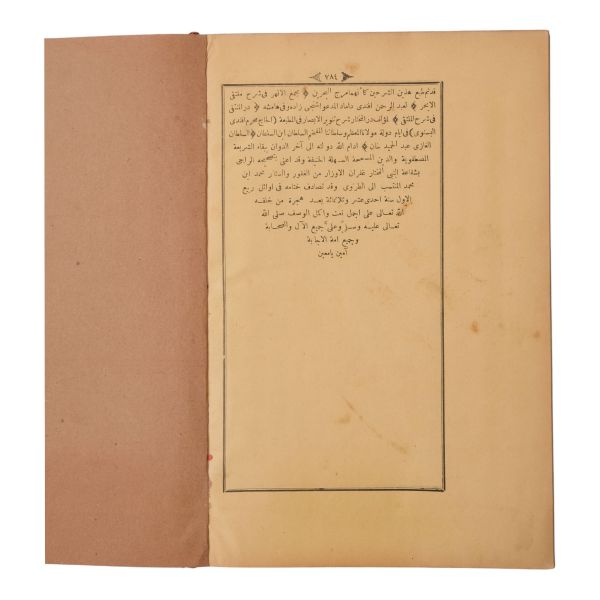 ٧٨٤
قد تم طبع هذين الشرحين كأنهما مرج البحرين ﴿ مجمع الانهر فى شرح ملتقى
الابحر ﴾ لعبد الرحمن افندى داماد المدعو بشيخى زاده وفى هامشه ﴿ در المنتقى
فى شرح الملتقى ﴾ لمؤلف در المختار شرح تنوير الابصار فى المطبعة (الحاج محرم افندى
البسنوى) فى ايام دولة مولانا المعظم وسلطاننا المفخم السلطان ابن السلطان ﴿ السلطان
الغازى عبد الحميد خان ﴾ ادام الله دولته الى آخر الدوران ببقاء الشريعة
المصطفوية والدين المسمحة السهلة الحنيفة وقد اعتنى بتصحيحه الراجى
بشفاعة النبى المختار غفران الاوزار من الغفور والستار محمد ابن
محمد المنتسب الى الطرنوى وقد تصادف ختامه فى اوائل ربيع
الاول سنة احدى عشر وثلاثمائة بعد هجرة من خلقه
الله تعالى على اجمل نعت واكمل الوصف صلى الله
تعالى عليه وسلم وعلى جميع الآل والصحابة
وجميع امة الاجابة
آمين يامعين